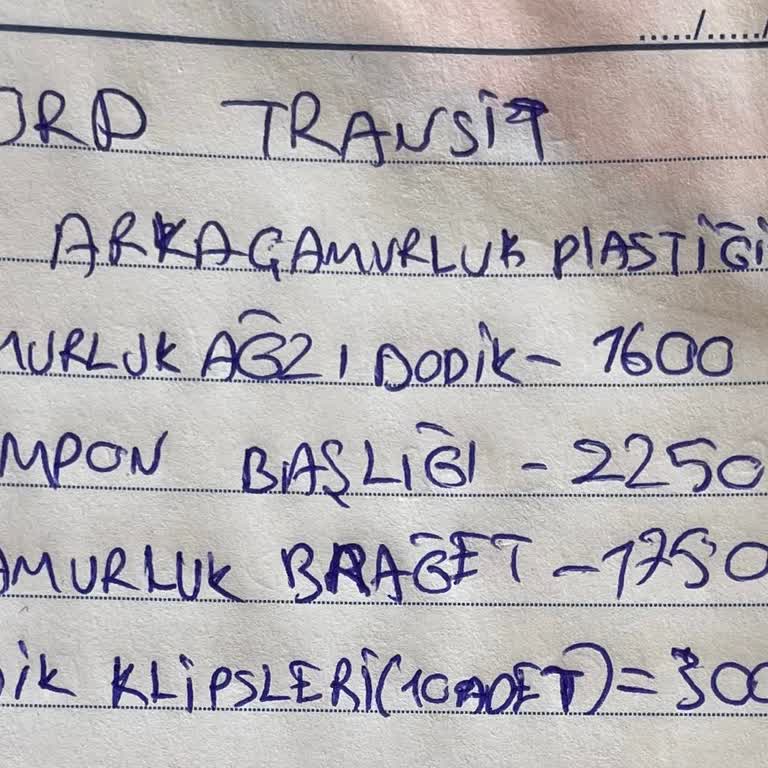 ORD TRANSİT
ARKA ÇAMURLUK PLASTİĞİ
MURLUK AĞZI DODİK - 1600
MPON BAŞLIĞI - 2250
AMURLUK BRAĞET - 1750
İK KLİPSLERİ (10 ADET) = 300